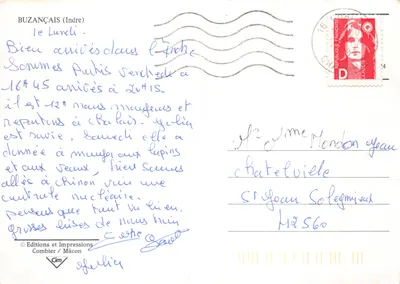 BUZANÇAIS (Indre)
le Lundi.
Bien arrivés dans l'Indre
Sommes Partis vendredi a
16H45 arrivés à 20H15.
il est 12H nous mangeons et
repartons à
est ravie. Samedi elle a
donnée à manger aux lapins
et aux Hier sommes
allés à chinon voir une
centrale nucléaire.
pensons que tout va bien.
grosses bises de nous
© Editions et Impressions
Combier / Mâcon
Cim
D
Mr Mme Mondon Jean
Chatelville
St Jean Solegmieux
42560